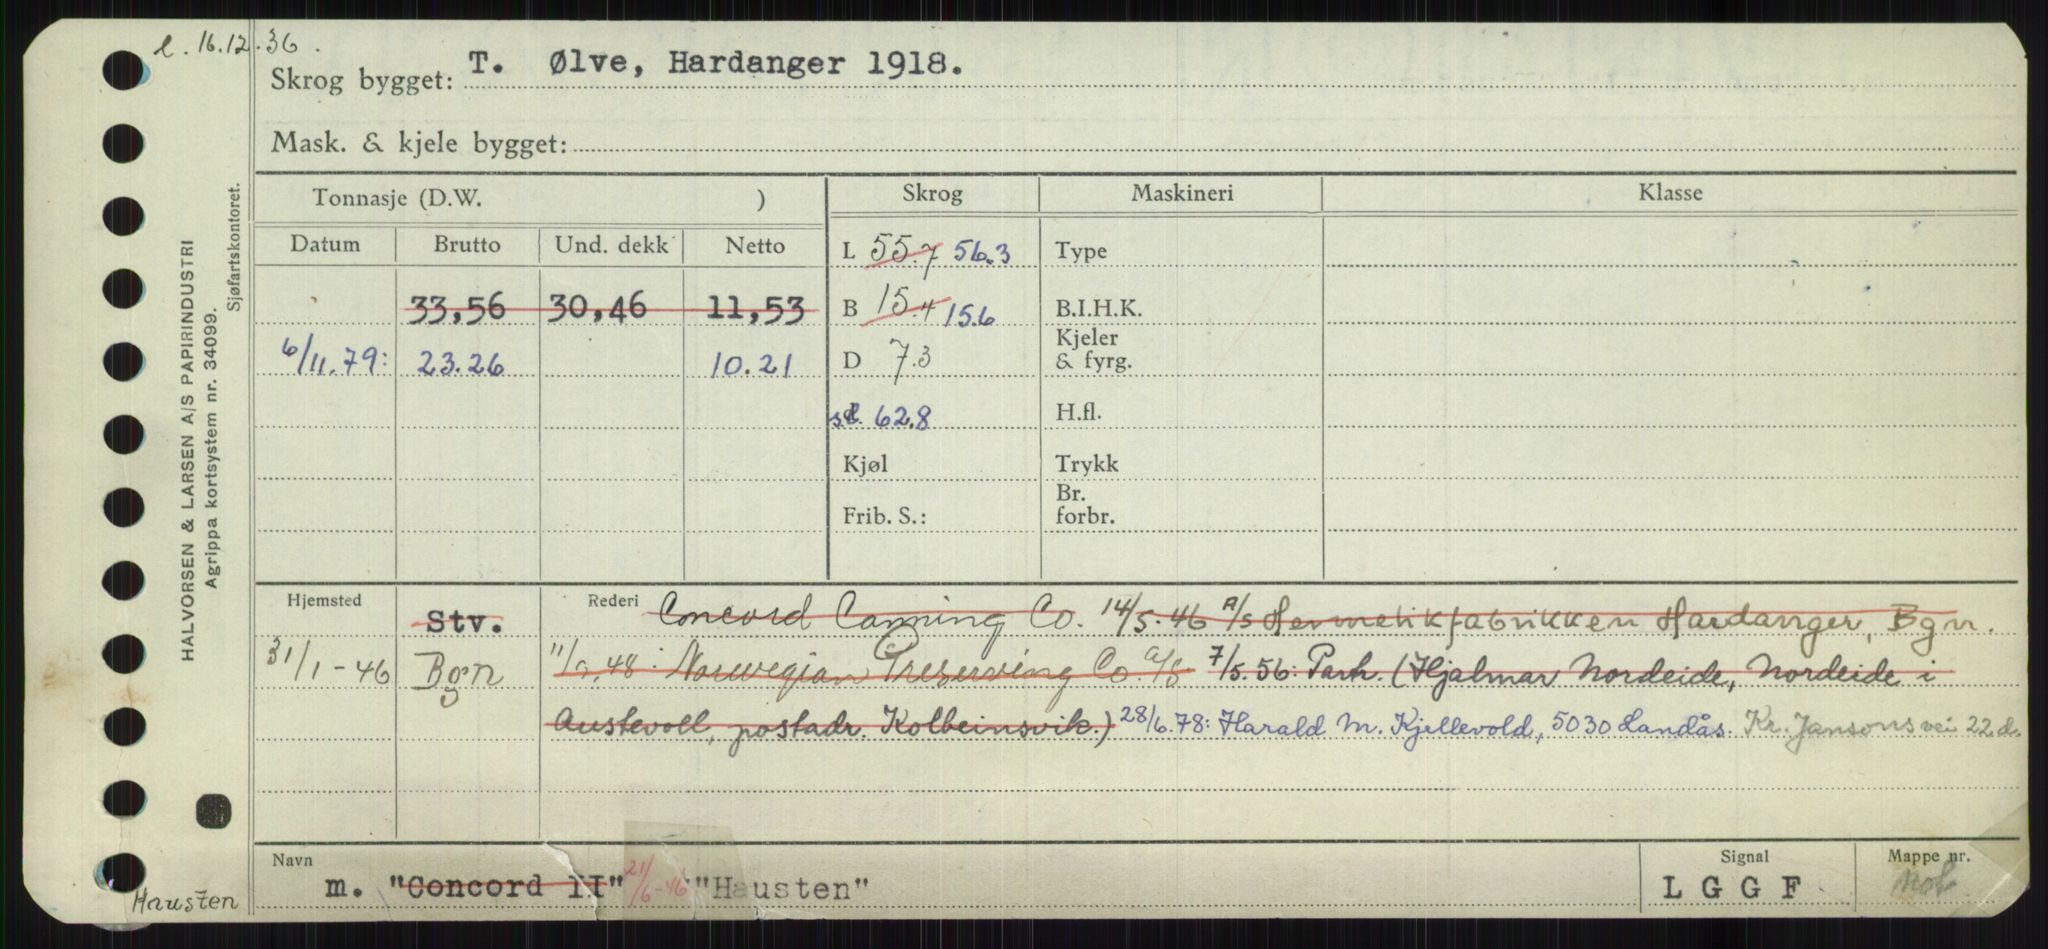 l. 16.12.36.
Skrog bygget: T. Ølve, Hardanger 1918.
Mask. & kjele bygget:
HALVORSEN & LARSEN A/S PAPIRINDUSTRI
Agrippa kortsystem nr. 34099.
Sjøfartskontoret.
Tonnasje (D.W. ) Skrog Maskineri Klasse
Datum Brutto Und. dekk Netto L 55.7 56.3 Type
33,56 30,46 11,53 B 15.4 15.6 B.I.H.K.
6/11.79: 23.26 10.21 D 7.3 Kjeler & fyrg.
s.l. 62.8 H.fl.
Kjøl Trykk
Frib. S.: Br. forbr.
Hjemsted Stv. Rederi Concord Canning Co. 14/5-46 A/S Hermetikkfabrikken Hardanger, Bgn.
31/1-46 Bgn 11/9.48: Norwegian Preserving Co. A/S. 7/5.56: Parh. (Hjalmar Nordeide, Nordeide i
Austevoll, postadr. Kolbeinsvik.) 28/6.78: Harald M. Kjellevold, 5030 Landås. Kr. Jansons vei 22 d.
Navn Signal Mappe nr.
m. "Concord II" 21/6-46 "Hausten" LGGF Mob
Hausten